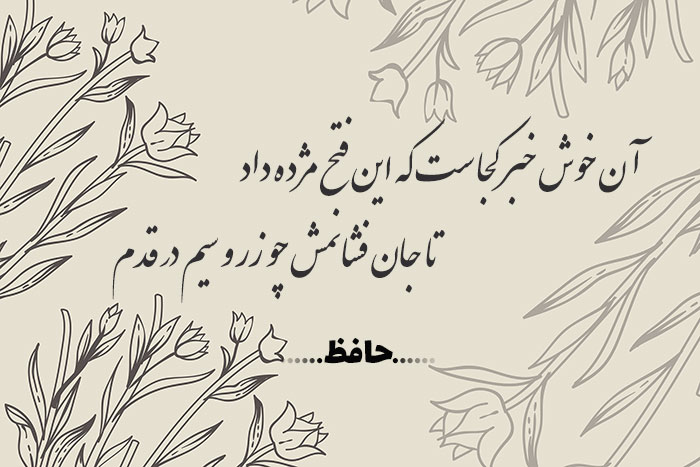 آن خوش خبر کجاست که این فتح مژده داد
تا جان فشانمش چو زر و سیم در قدم
......حافظ......